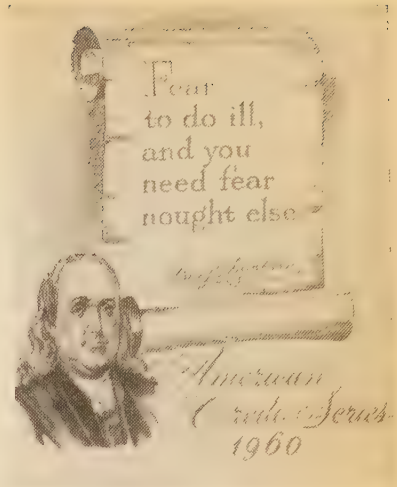 Fear
to do ill,
and you
need fear
nought else
American
Credo Series
1960